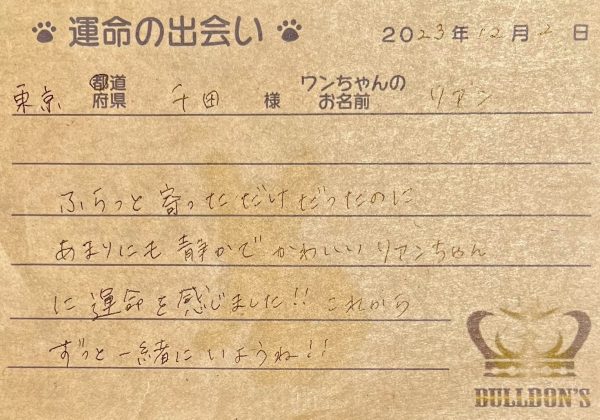 運命の出会い 2023年12月2日
東京 都道府県 千田 様 ワンちゃんのお名前 リアン
ふらっと寄っただけだったのに
あまりにも静かでかわいいリアンちゃん
に運命を感じました!! これから
ずっと一緒にいようね!!
BULLDON'S